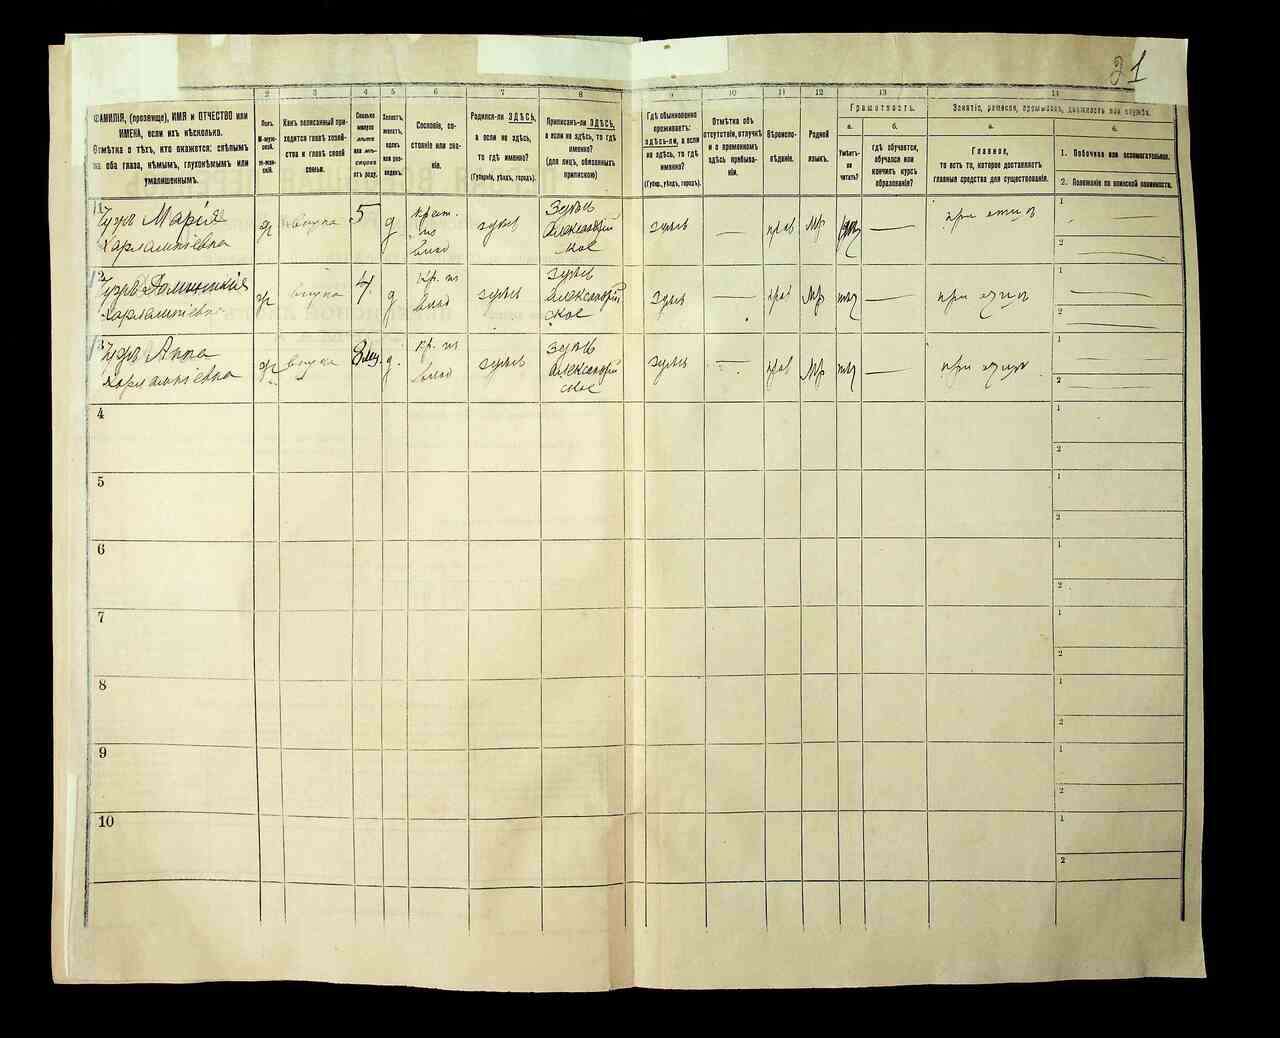 21
2 3 4 5 6 7 8 9 10 11 12 13 14
ФАМИЛІЯ, (прозвище), ИМЯ и ОТЧЕСТВО или
ИМЕНА, если ихъ нѣсколько.
Отмѣтка о тѣхъ, кто окажется: слѣпымъ
на оба глаза, нѣмымъ, глухонѣмымъ или
умалишеннымъ.
Полъ.
М-муж-
ской.
Ж-жен-
скій.
Какъ записанный при-
ходится главѣ хозяй-
ства и главѣ своей
семьи.
Сколько
минуло
лѣтъ
или мѣ-
сяцевъ
отъ роду.
Холостъ,
женатъ,
вдовъ
или раз-
веденъ.
Сословіе, со-
стояніе или зва-
ніе.
Родился-ли ЗДѢСЬ,
а если не здѣсь,
то гдѣ именно?
(Губернія, уѣздъ, городъ).
Приписанъ-ли ЗДѢСЬ,
а если не здѣсь, то гдѣ
именно?
(для лицъ, обязанныхъ
припискою)
Гдѣ обыкновенно
проживаетъ:
здѣсь-ли, а если
не здѣсь, то гдѣ
именно?
(Губер., уѣздъ, городъ).
Отмѣтка объ
отсутствіи, отлучкѣ
и о временномъ
здѣсь пребыва-
ніи.
Вѣроиспо-
вѣданіе.
Родной
языкъ.
Грамотность.
а.
Умѣетъ-
ли
читать?
б.
гдѣ обучается,
обучался или
кончилъ курсъ
образованія?
Занятіе, ремесло, промыселъ, должность или служба.
а.
Главное,
то есть то, которое доставляетъ
главныя средства для существованія.
б.
1. Побочное или вспомогательное.
2. Положеніе по воинской повинности.
1 Марія
Харлампіевна
ж внучка 5 д
Крест.
из
влад
здѣсь
Здѣсь
Александрий
ское
здѣсь — прав —
1
2
2
Харлампіевна
ж внучка 4 д
Кр. из
влад
здѣсь
Здѣсь
Александрий
ское
здѣсь — прав —
1
2
3 Анна
Харлампіевна
ж внучка д.
Кр. из
влад
здѣсь
Здѣсь
Александрий
ское
здѣсь — прав —
1
2
4
1
2
5
1
2
6
1
2
7
1
2
8
1
2
9
1
2
10
1
2